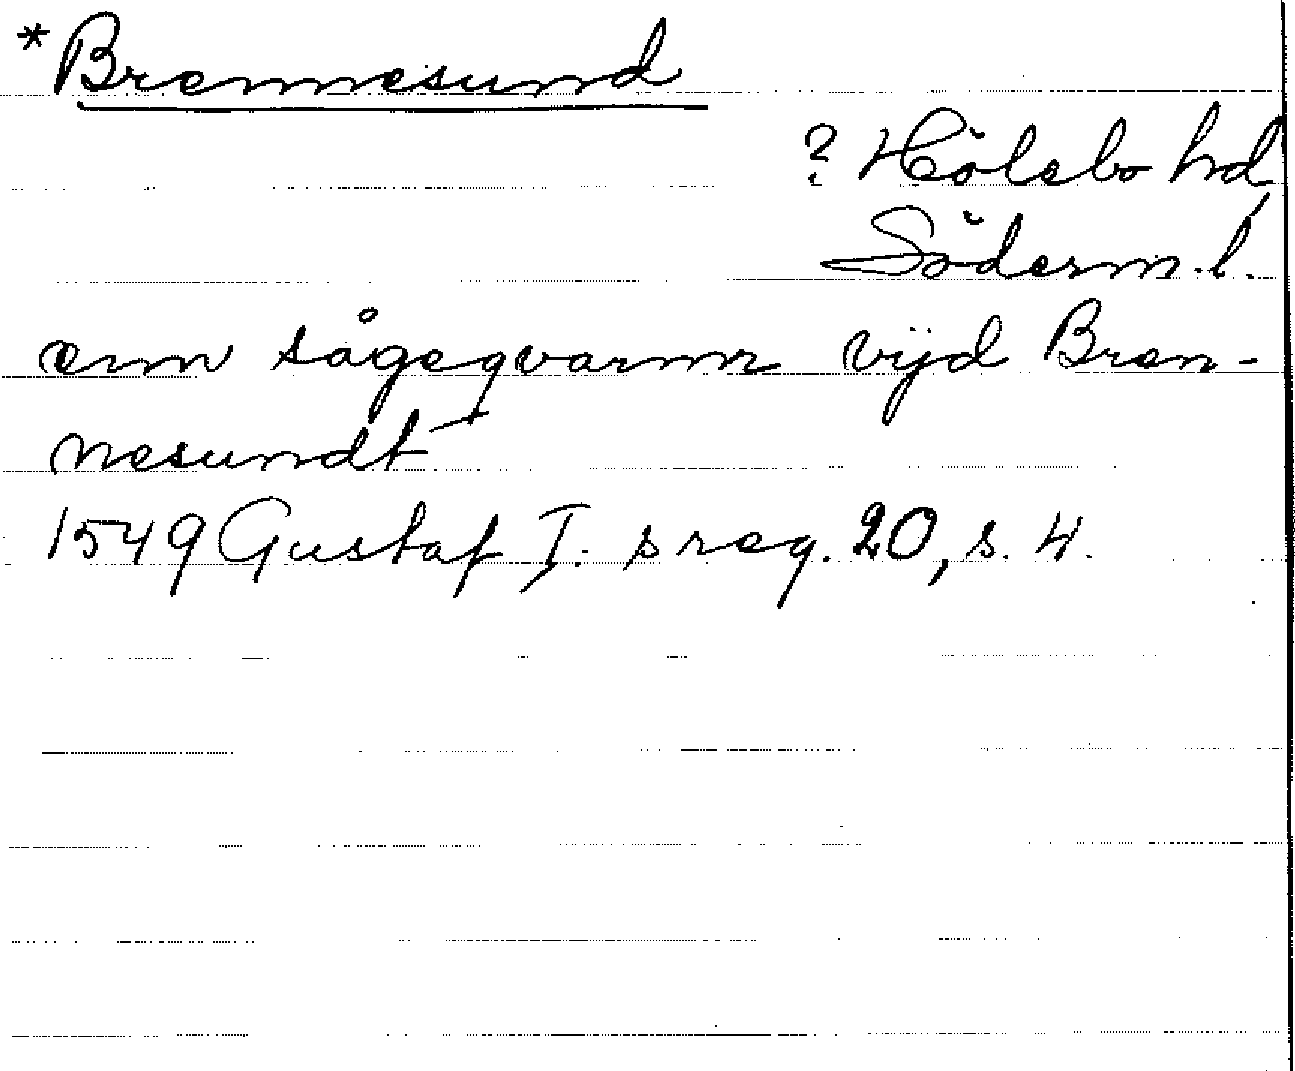 *Brennesund
? Hölebo hd,
Söderm. l.
enn sågeqvarnn vijd Bren-
nesundt
1549 Gustaf I:s reg. 20, s. 4.